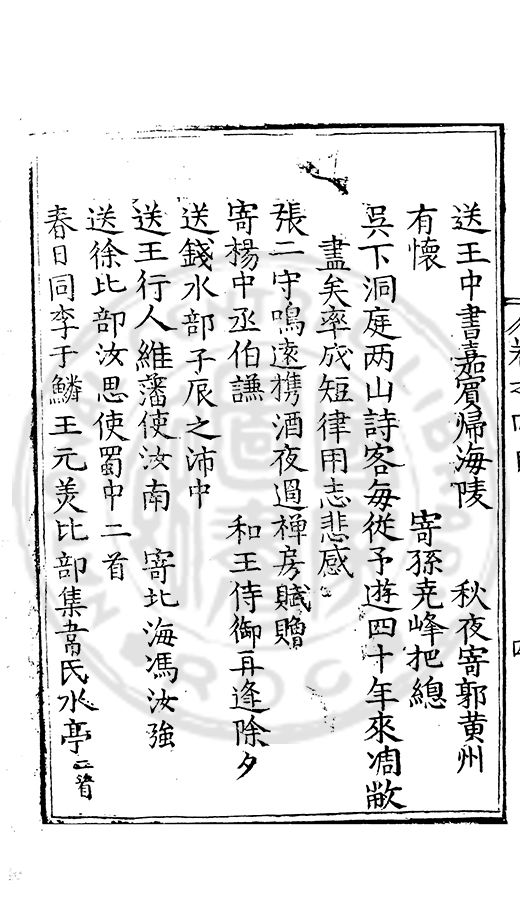 送王中書嘉賓歸海陵　秋夜寄郭黄州
有懷　寄孫堯峰把總
吳下洞庭两山詩客每從予遊四十年來凋敝
盡矣率成短律用志悲感
張二守鳴遠携酒夜過禅房賦贈
寄楊中丞伯謙　和王侍御再逢除夕
送錢水部子辰之沛中
送王行人維藩使汝南　寄北海馮汝強
送徐比部汝思使蜀中二首
春日同李于鱗王元美比部集韋氏水亭二首